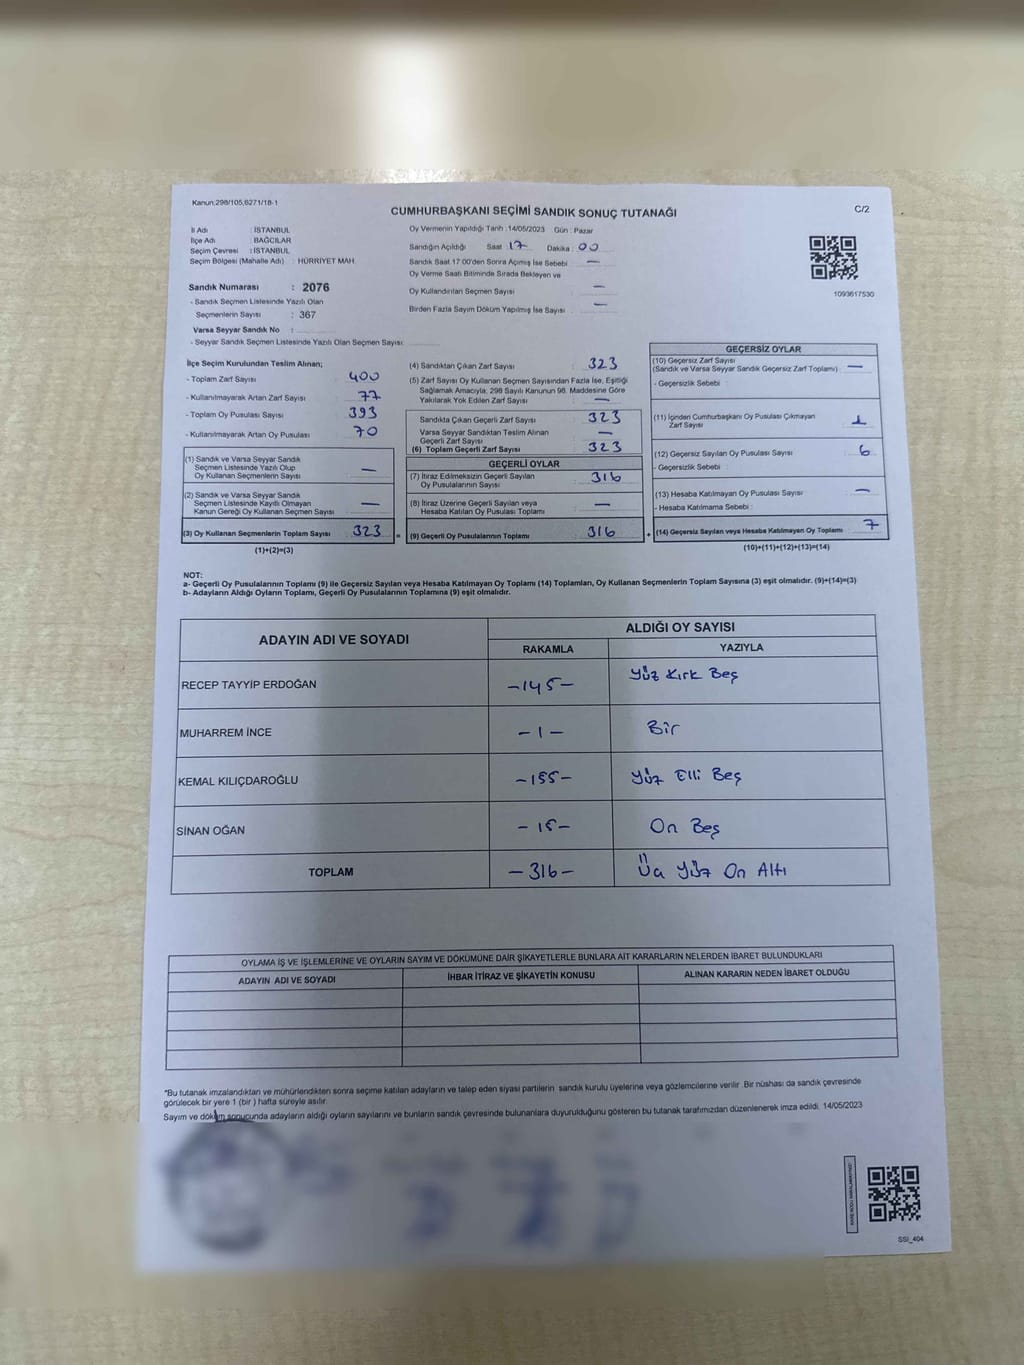 Kanun.298/105,6271/18-1
CUMHURBAŞKANI SEÇİMİ SANDIK SONUÇ TUTANAĞI
C/2
İl Adı : İSTANBUL
İlçe Adı : BAĞCILAR
Seçim Çevresi : İSTANBUL
Seçim Bölgesi (Mahalle Adı) : HÜRRİYET MAH.
Sandık Numarası : 2076
- Sandık Seçmen Listesinde Yazılı Olan
Seçmenlerin Sayısı : 367
Varsa Seyyar Sandık No :
- Seyyar Sandık Seçmen Listesinde Yazılı Olan Seçmen Sayısı:
Oy Vermenin Yapıldığı Tarih : 14/05/2023 Gün : Pazar
Sandığın Açıldığı Saat : 17 Dakika : 00
Sandık Saat 17:00'den Sonra Açılmış İse Sebebi : —
Oy Verme Saati Bitiminde Sırada Bekleyen ve
Oy Kullandırılan Seçmen Sayısı : —
Birden Fazla Sayım Döküm Yapılmış İse Sayısı : —
1093617530
İlçe Seçim Kurulundan Teslim Alınan;
- Toplam Zarf Sayısı : 400
- Kullanılmayarak Artan Zarf Sayısı : 77
- Toplam Oy Pusulası Sayısı : 393
- Kullanılmayarak Artan Oy Pusulası : 70
(1) Sandık ve Varsa Seyyar Sandık
Seçmen Listesinde Yazılı Olup
Oy Kullanan Seçmenlerin Sayısı : —
(2) Sandık ve Varsa Seyyar Sandık
Seçmen Listesinde Kayıtlı Olmayan
Kanun Gereği Oy Kullanan Seçmen Sayısı : —
(3) Oy Kullanan Seçmenlerin Toplam Sayısı : 323 =
(1)+(2)=(3)
(4) Sandıktan Çıkan Zarf Sayısı : 323
(5) Zarf Sayısı Oy Kullanan Seçmen Sayısından Fazla İse, Eşitliği
Sağlamak Amacıyla, 298 Sayılı Kanunun 98. Maddesine Göre
Yakılarak Yok Edilen Zarf Sayısı : —
Sandıkta Çıkan Geçerli Zarf Sayısı : 323
Varsa Seyyar Sandıktan Teslim Alınan
Geçerli Zarf Sayısı : —
(6) Toplam Geçerli Zarf Sayısı : 323
GEÇERLİ OYLAR
(7) İtiraz Edilmeksizin Geçerli Sayılan
Oy Pusulalarının Sayısı : 316
(8) İtiraz Üzerine Geçerli Sayılan veya
Hesaba Katılan Oy Pusulası Toplamı : —
(9) Geçerli Oy Pusulalarının Toplamı : 316 +
GEÇERSİZ OYLAR
(10) Geçersiz Zarf Sayısı
(Sandık ve Varsa Seyyar Sandık Geçersiz Zarf Toplamı) : —
- Geçersizlik Sebebi :
(11) İçinden Cumhurbaşkanı Oy Pusulası Çıkmayan
Zarf Sayısı : 1
(12) Geçersiz Sayılan Oy Pusulası Sayısı : 6
- Geçersizlik Sebebi :
(13) Hesaba Katılmayan Oy Pusulası Sayısı : —
- Hesaba Katılmama Sebebi :
(14) Geçersiz Sayılan veya Hesaba Katılmayan Oy Toplamı : 7
(10)+(11)+(12)+(13)=(14)
NOT:
a- Geçerli Oy Pusulalarının Toplamı (9) ile Geçersiz Sayılan veya Hesaba Katılmayan Oy Toplamı (14) Toplamları, Oy Kullanan Seçmenlerin Toplam Sayısına (3) eşit olmalıdır. (9)+(14)=(3)
b- Adayların Aldığı Oyların Toplamı, Geçerli Oy Pusulalarının Toplamına (9) eşit olmalıdır.
ADAYIN ADI VE SOYADI
ALDIĞI OY SAYISI
RAKAMLA YAZIYLA
RECEP TAYYİP ERDOĞAN -145- Yüz Kırk Beş
MUHARREM İNCE -1- Bir
KEMAL KILIÇDAROĞLU -155- Yüz Elli Beş
SİNAN OĞAN -15- On Beş
TOPLAM -316- Yüz On Altı
OYLAMA İŞ VE İŞLEMLERİNE VE OYLARIN SAYIM VE DÖKÜMÜNE DAİR ŞİKAYETLERLE BUNLARA AİT KARARLARIN NELERDEN İBARET BULUNDUKLARI
ADAYIN ADI VE SOYADI İHBAR İTİRAZ VE ŞİKAYETİN KONUSU ALINAN KARARIN NEDEN İBARET OLDUĞU
*Bu tutanak imzalandıktan ve mühürlendikten sonra seçime katılan adayların ve talep eden siyasi partilerin sandık kurulu üyelerine veya gözlemcilerine verilir. Bir nüshası da sandık çevresinde
görülecek bir yere 1 (bir ) hafta süreyle asılır.
Sayım ve döküm sonucunda adayların aldığı oyların sayılarını ve bunların sandık çevresinde bulunanlara duyurulduğunu gösteren bu tutanak tarafımızdan düzenlenerek imza edildi. 14/05/2023
SSI_404